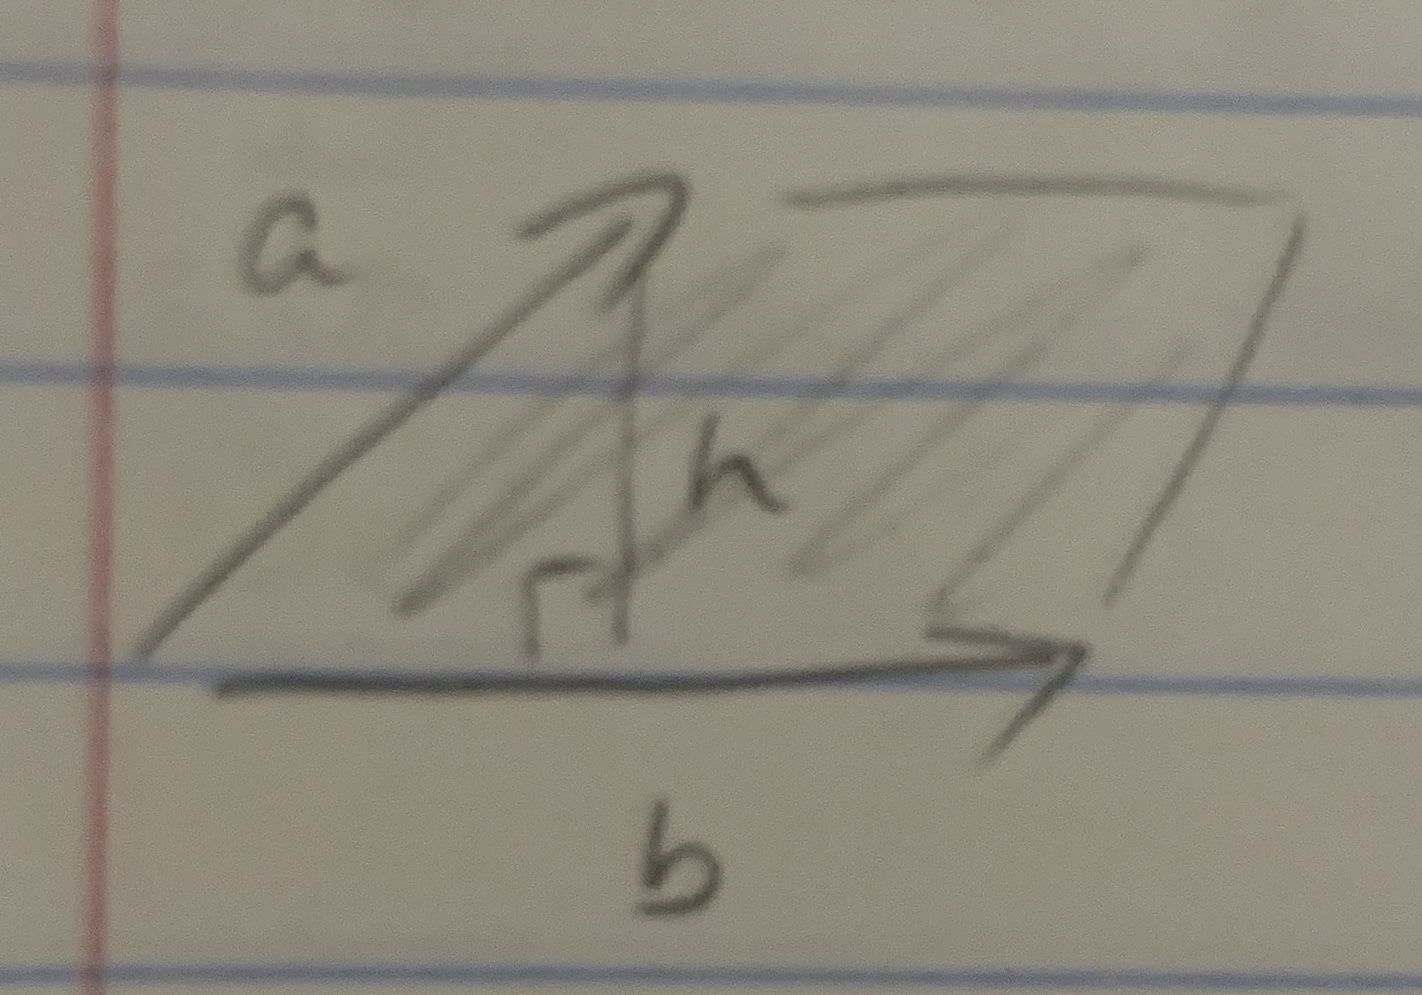 a
h
b